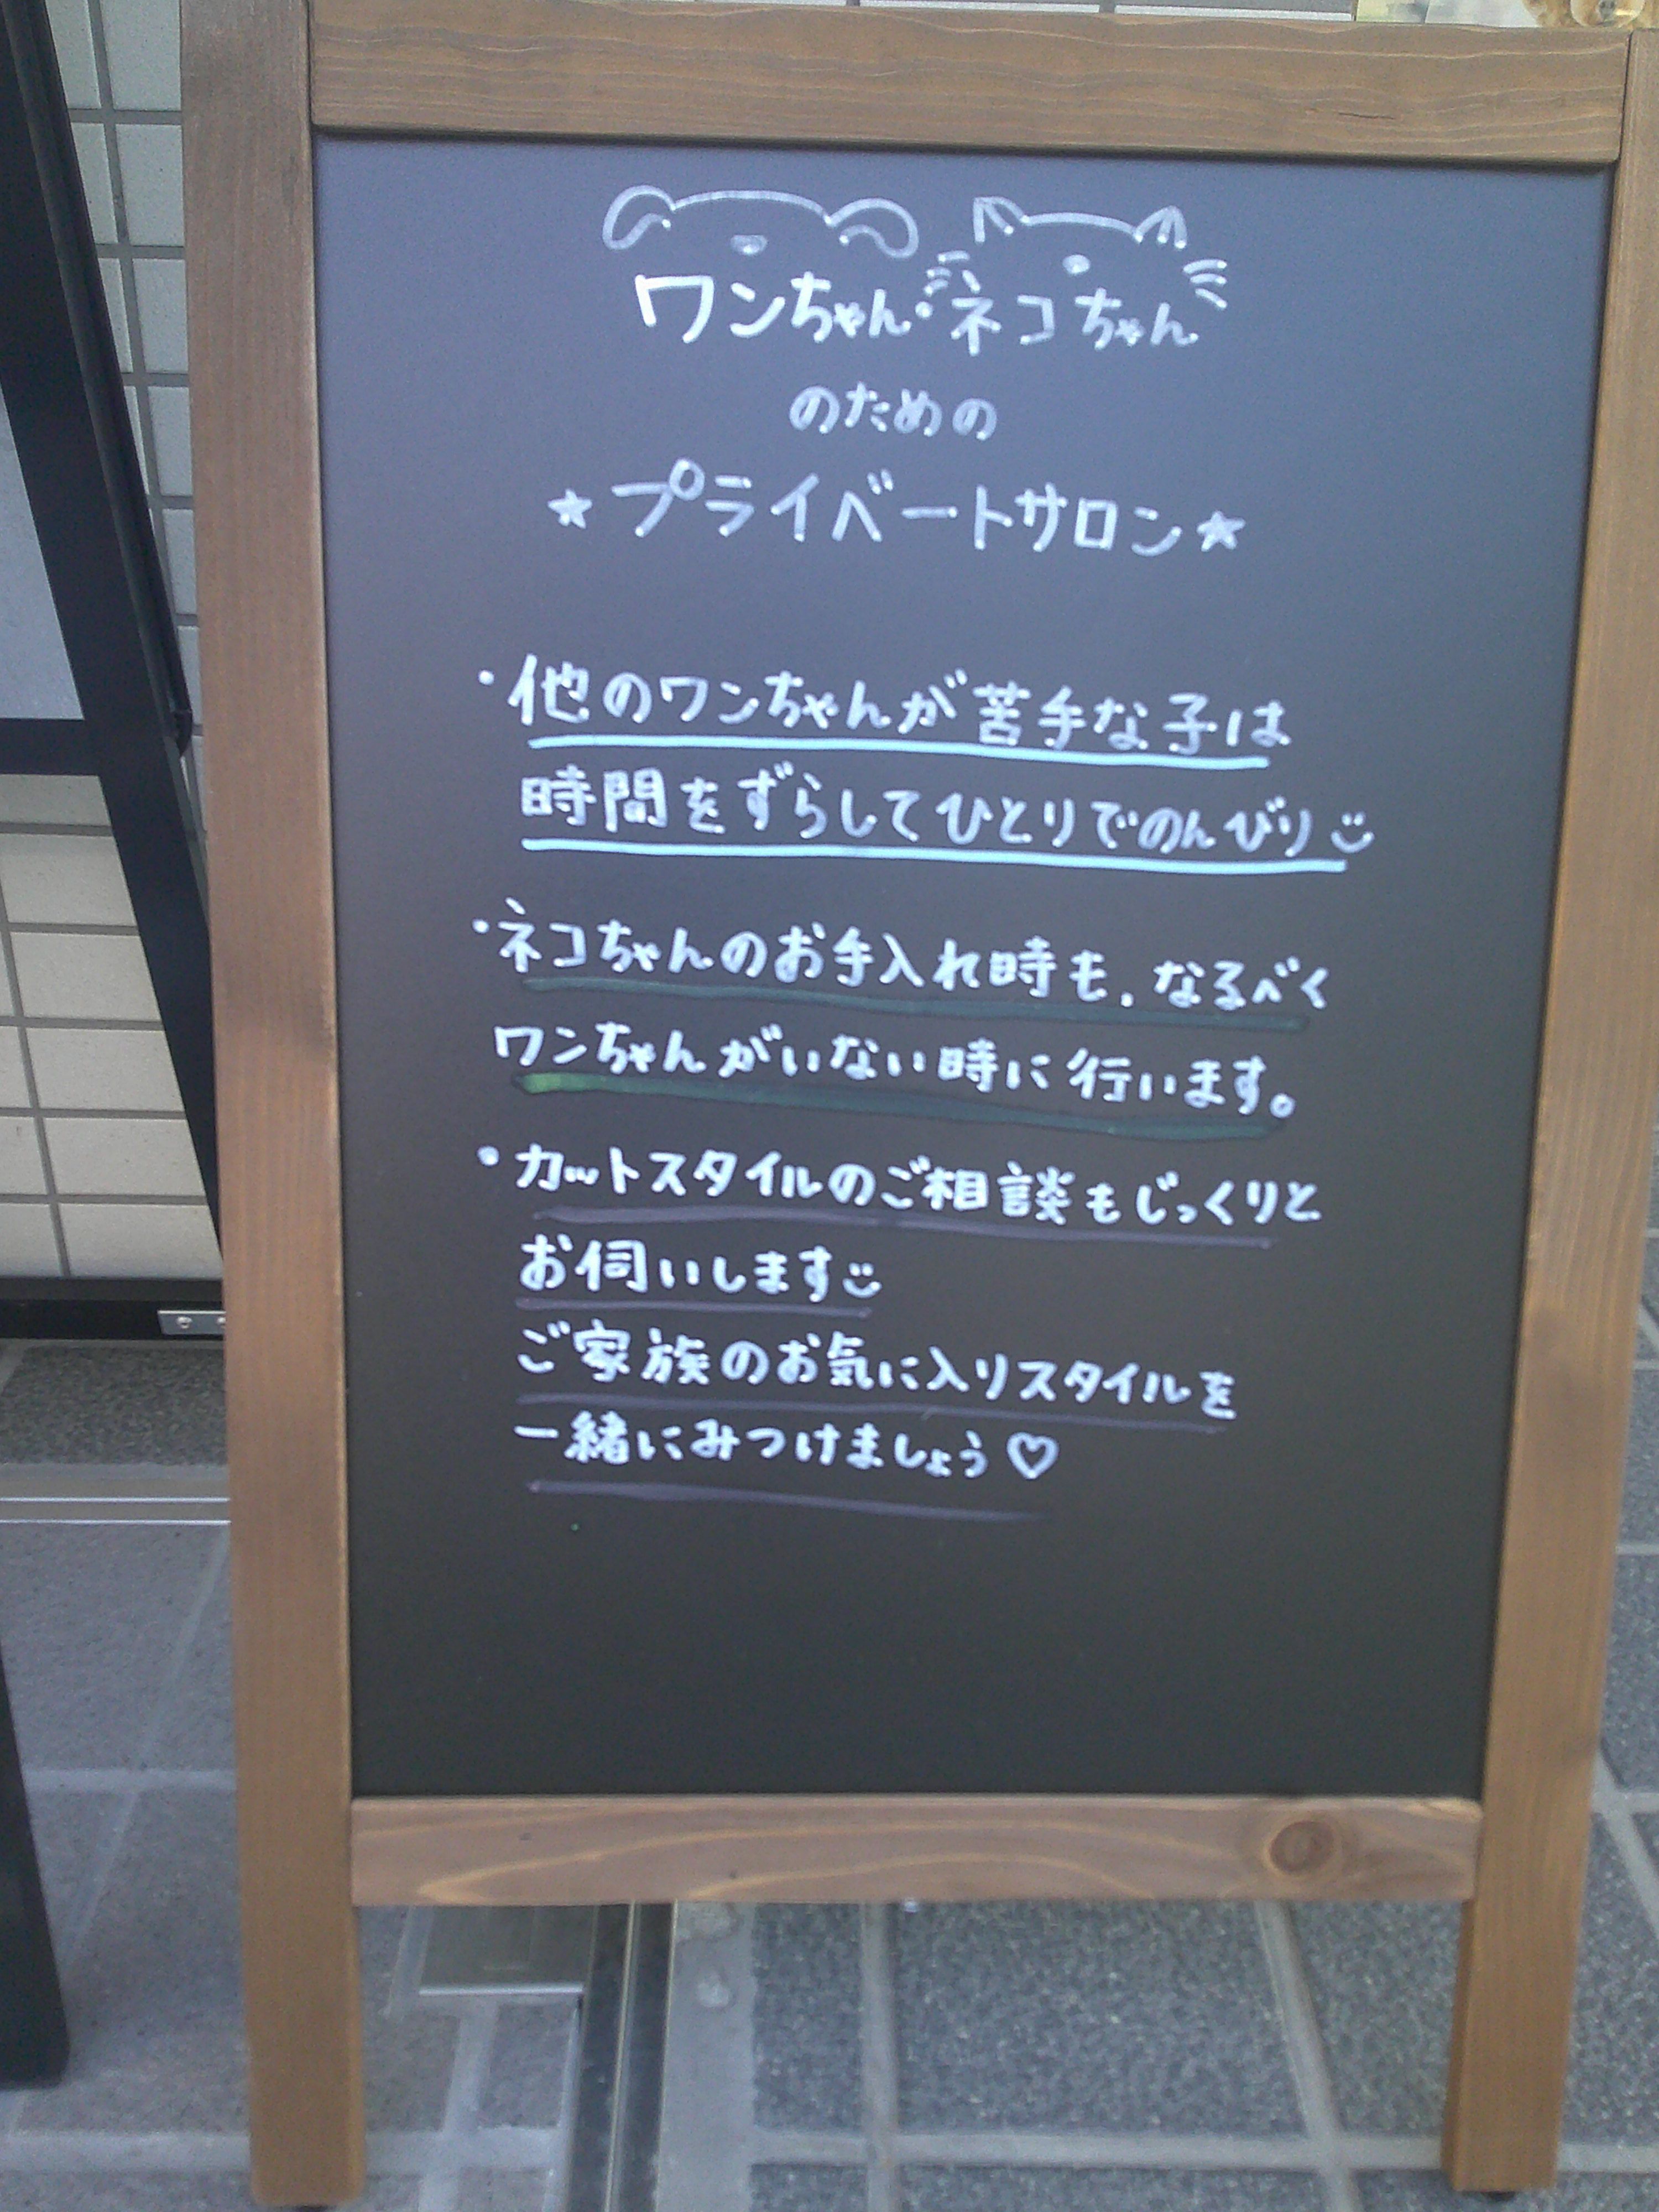 ワンちゃん・ネコちゃん
のための
★プライベートサロン★
・他のワンちゃんが苦手な子は
時間をずらしてひとりでのんびり
・ネコちゃんのお手入れ時も、なるべく
ワンちゃんがいない時に行います。
・カットスタイルのご相談もじっくりと
お伺いします
ご家族のお気に入りスタイルを
一緒にみつけましょう♡